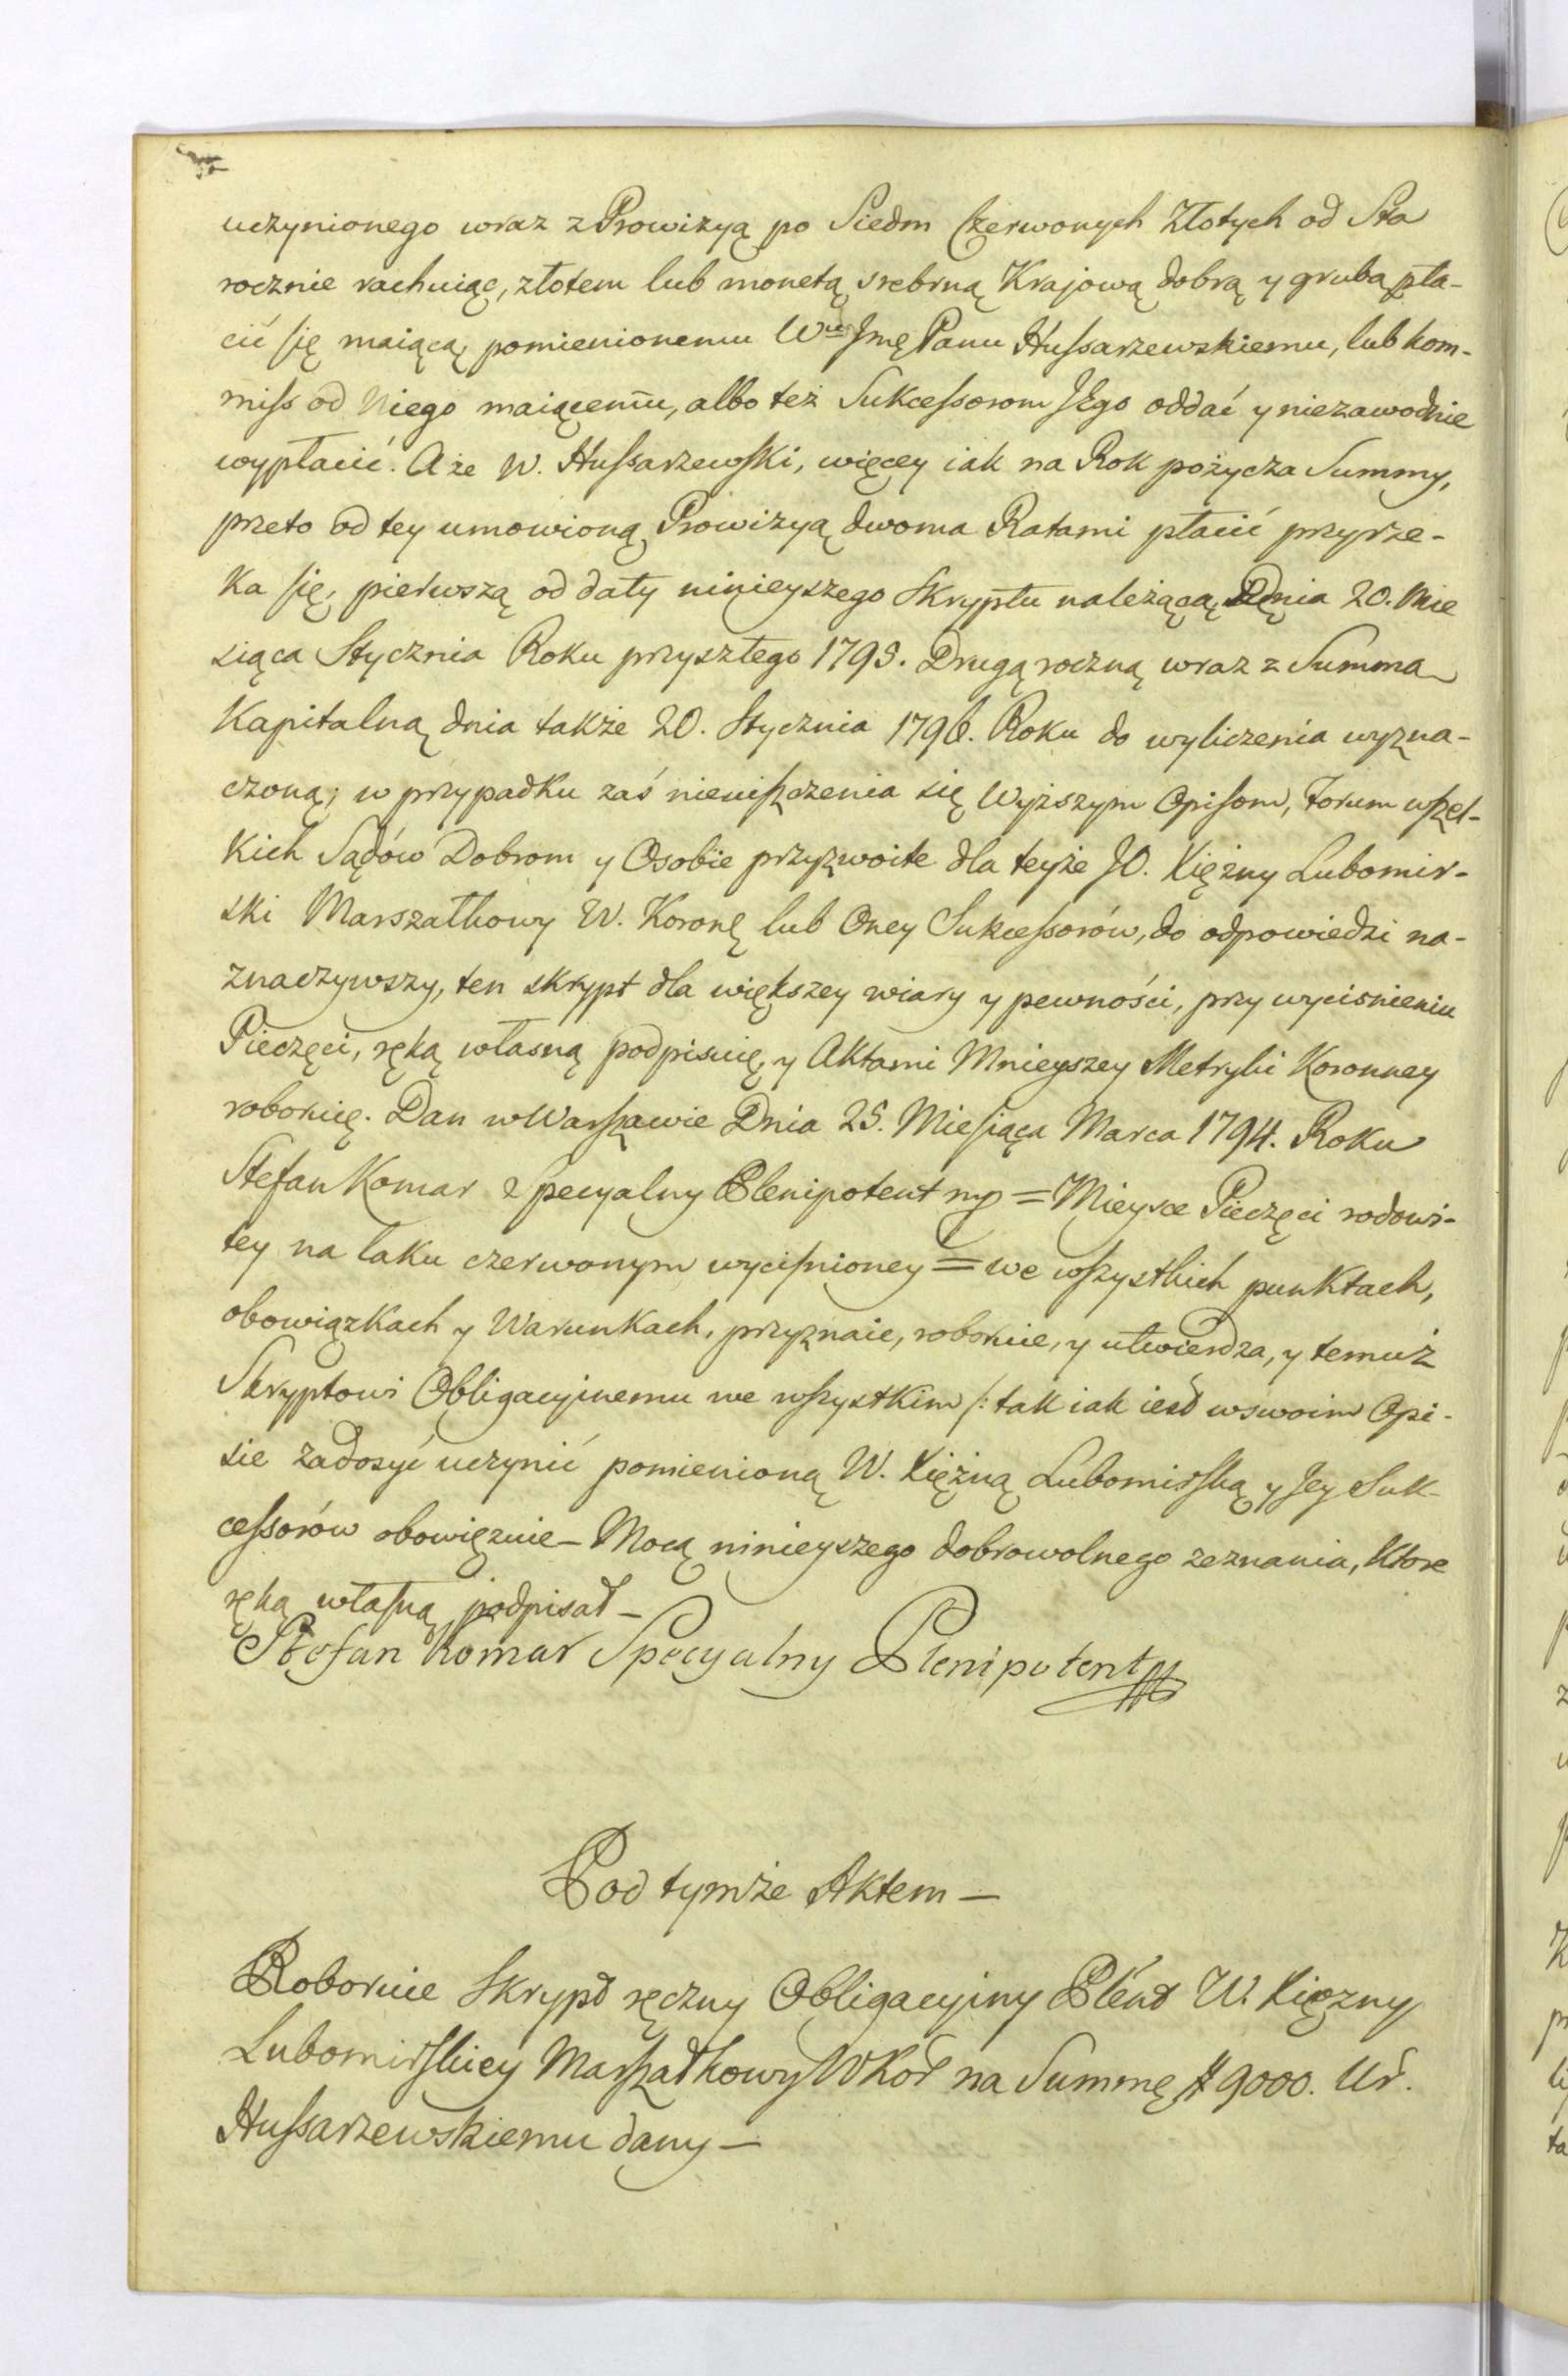 uczynionego wraz z Prowizyą po Siedm Czerwonych Złotych od Sta
rocznie rachuiąc, złotem lub monetą srebrną Krajową dobrą y grubą pła-
cić się maiącą pomienionemu Wu Jmę Panu Hussarzewskiemu, lub kom-
miss od Niego maiącemu, albo też Sukcessorom Jego oddać y niezawodnie
wypłacić. A że W. Hussarzewski, więcey iak na Rok pożycza Summy,
przeto od tey umowioną Prowizyą dwoma Ratami płacić przyrze-
ka się, pierwszą od daty ninieyszego Skryptu należącą Dnia 20. Mie
siąca Stycznia Roku przyszłego 1795. Drugą roczną wraz z Summa
Kapitalną dnia także 20. Stycznia 1796. Roku do wyliczenia wyzna-
czoną; w przypadku zaś nieuiszczenia się Wyższym Opisom, Forum wszel-
kich Sądów Dobrom y Osobie przyzwoite dla teyże JO. Xiężny Lubomir-
ski Marszałkowy W. Koronę lub Oney Sukcessorów, do odpowiedzi na-
znaczywszy, ten skrypt dla większey wiary y pewności, przy wycisnieniu
Pieczęci, ręką własną podpisuię, y Aktami Mnieyszey Metryki Koronney
roboruię. Dan w Warszawie Dnia 25. Miesiąca Marca 1794. Roku
Stefan Komar Specyalny Plenipotent mp = Mieysce Pieczęci rodowi-
tey na laku czerwonym wycisnioney = we wszystkich punktach,
obowiązkach y Warunkach, przyznaie, roboruie, y utwierdza, y temuż
Skryptowi Obligacyjnemu we wszystkim /: tak iak iest w swoim Opi-
sie zadosyć uczynić pomienioną W. Xiężną Lubomirską y Jey Suk-
cessorów obowięzuie – Mocą ninieyszego dobrowolnego zeznania, ktore
ręką własną podpisał –
Stefan Komar Specyalny Plenipotent

Pod tymże Aktem –
Roboruie Skrypt ręczny Obligacyjny Plént W. Xiężny
Lubomirskiey Marszałkowy WKor na Summę # 9000. Ur.
Hussarzewskiemu dany –